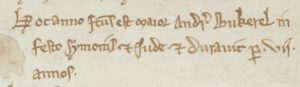 Hoc anno fcūs est maior Andr̃ Bukerel in
festo symonis & Jude & durauit p̱ vii.
annos.